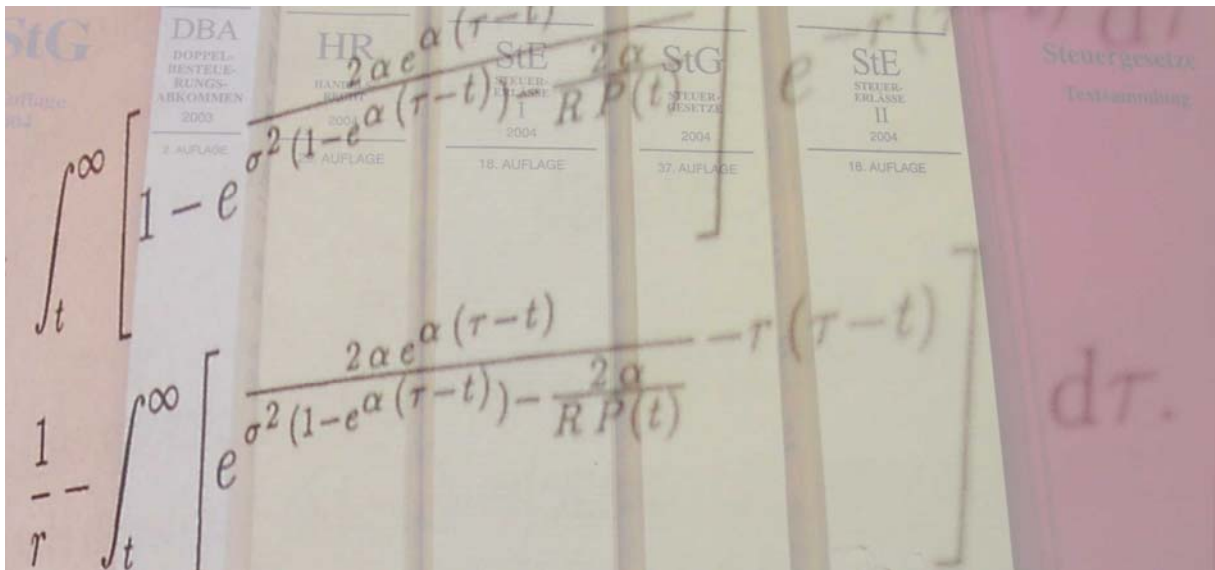 StG
DBA
DOPPEL-
BESTEUE-
RUNGS-
ABKOMMEN
2003
2. AUFLAGE
HR
2004
AUFLAGE
StE
STEUER-
ERLÄSSE
I
2004
18. AUFLAGE
StG
STEUER-
GESETZE
2004
37. AUFLAGE
StE
STEUER-
ERLÄSSE
II
2004
18. AUFLAGE
Steuergesetze
Textsammlung
∫_t^∞ [1 − e^{\frac{2 α e^{α (τ−t)}}{σ^2 (1−e^{α (τ−t)})−\frac{2 α}{R P(t)}}}] e^{−r (τ−t)} dτ
\frac{1}{r} − ∫_t^∞ [e^{\frac{2 α e^{α (τ−t)}}{σ^2 (1−e^{α (τ−t)})−\frac{2 α}{R P(t)}} − r (τ−t)}] dτ.